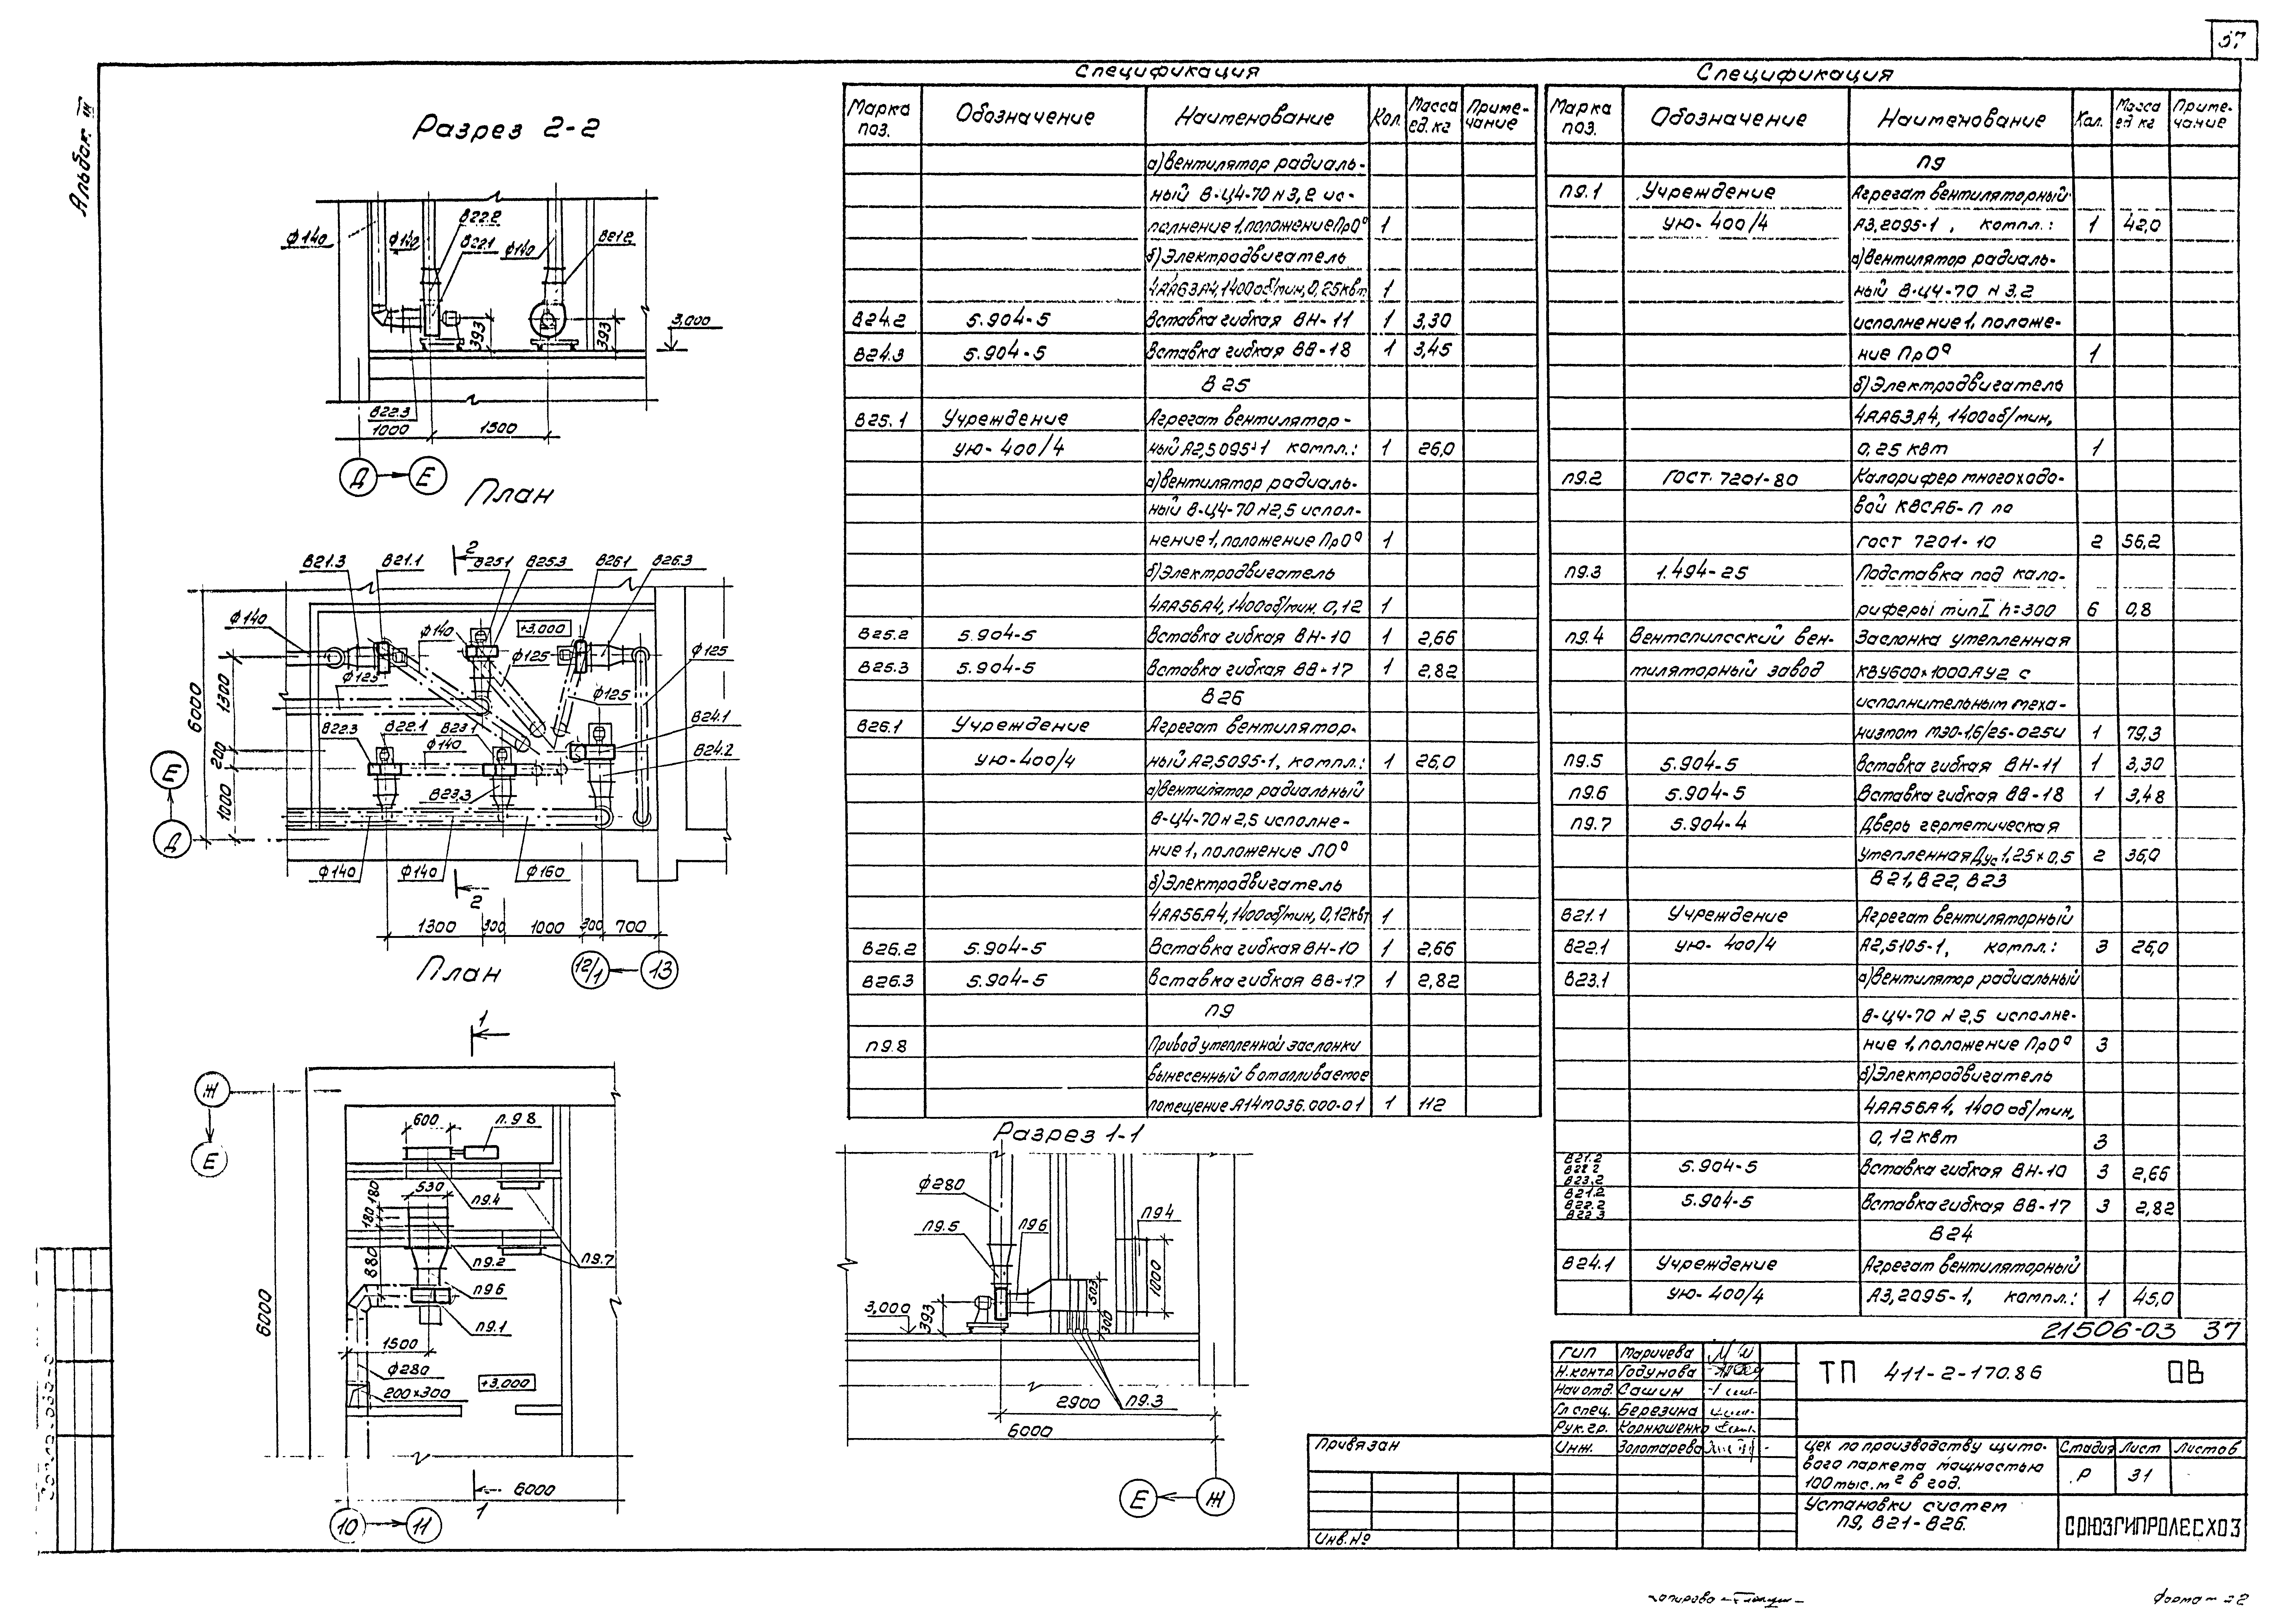 37
Альбом III
Разрез 2-2
ф140
ф140
В22.2
В22.1
ф140
В21.2
393
393
3,000
В22.3
1000
1500
Д
Е
План
В21.3
В21.1
2
В25.1
В25.3
В26.1
В26.3
ф140
ф140
+3,000
ф125
ф125
ф125
ф125
6000
1300
200
1000
В22.3
В22.1
В23.1
ф140
В24.1
В24.2
В23.3
Е
Д
ф140
ф140
ф160
2
1300
300
1000
300
700
12/1
13
План
1
Ж
Е
600
п.9 8
п9.4
530
180
180
п9.2
п9.7
880
п9 6
п9.1
6000
1500
ф280
200х300
+3,000
6000
1
10
11
Спецификация
Марка поз.
Обозначение
Наименование
Кол.
Масса ед. кг
Приме-чание
а)Вентилятор радиаль-
ный В-Ц4-70 N3,2 ис-
полнение 1, положение Пр0° 1
б)Электродвигатель
4АА63А4, 1400об/мин, 0,25квт 1
В24.2 5.904-5 Вставка гибкая ВН-11 1 3,30
В24.3 5.904-5 Вставка гибкая ВВ-18 1 3,45
В 25
В25.1 Учреждение Агрегат вентилятор-
ую-400/4 ный А2,5095-1 компл.: 1 26,0
а)Вентилятор радиаль-
ный В-Ц4-70 N2,5 испол-
нение 1, положение Пр0° 1
б)Электродвигатель
4АА56А4, 1400об/мин. 0,12 1
В25.2 5.904-5 Вставка гибкая ВН-10 1 2,66
В25.3 5.904-5 Вставка гибкая ВВ-17 1 2,82
В26
В26.1 Учреждение Агрегат вентилятор-
ую-400/4 ный А2,5095-1, компл.: 1 26,0
а)Вентилятор радиальный
В-Ц4-70 N2,5 исполне-
ние 1, положение Л0°
б)Электродвигатель
4АА56А4, 1400об/мин, 0,12квт 1
В26.2 5.904-5 Вставка гибкая ВН-10 1 2,66
В26.3 5.904-5 Вставка гибкая ВВ-17 1 2,82
п9
п9.8 Привод утепленной заслонки
вынесенный в отапливаемое
помещение А14П036.000-01 1 112
Спецификация
Марка поз.
Обозначение
Наименование
Кол.
Масса ед кг
Приме-чание
п9
п9.1 Учреждение Агрегат вентиляторный
ую-400/4 А3,2095-1, компл.: 1 42,0
а)Вентилятор радиаль-
ный В-Ц4-70 N3,2
исполнение 1, положе-
ние Пр0° 1
б)Электродвигатель
4АА63А4, 1400об/мин,
0,25 квт 1
п9.2 ГОСТ 7201-80 Калорифер многоходо-
вой КВСА6-П по
ГОСТ 7201-10 2 56,2
п9.3 1.494-25 Подставка под кало-
риферы тип I h=300 6 0,8
п9.4 Вентспилсский вен- Заслонка утепленная
тиляторный завод КВУ600х1000АУ2 с
исполнительным меха-
низмом МЭО-1,6/25-025И 1 79,3
п9.5 5.904-5 Вставка гибкая ВН-11 1 3,30
п9.6 5.904-5 Вставка гибкая ВВ-18 1 3,48
п9.7 5.904-4 Дверь герметическая
утепленная Дус 1,25х0,5 2 36,0
В21, В22, В23
В21.1 Учреждение Агрегат вентиляторный
В22.1 ую-400/4 А2,5105-1, компл.: 3 26,0
В23.1 а)Вентилятор радиальный
В-Ц4-70 N2,5 исполне-
ние 1, положение Пр0° 3
б)Электродвигатель
4АА56А4, 1400 об/мин,
0,12квт 3
В21.2
В22.2
В23.2
5.904-5 Вставка гибкая ВН-10 3 2,66
В21.2
В22.2
В22.3
5.904-5 Вставка гибкая ВВ-17 3 2,82
В24
В24.1 Учреждение Агрегат вентиляторный
ую-400/4 А3,2095-1, компл.: 1 45,0
Разрез 1-1
ф280
п9.5
п9 6
п9 4
1000
503
300
3,000
393
п9.3
2900
6000
Е
Ж
21506-03 37
ГИП Маричева
Н.контр Годунова
Нач отд. Сашин
Гл спец. Березина
Рук. гр. Корнюшенко
Инж. Золотарева
ТП 411-2-170.86 ОВ
Цех по производству щито-
вого паркета мощностью
100тыс. м² в год.
Стадия Лист Листов
Р 31
Установки систем
п9, В21-В26.
СОЮЗГИПРОЛЕСХОЗ
Привязан
Инв. №
Формат 22